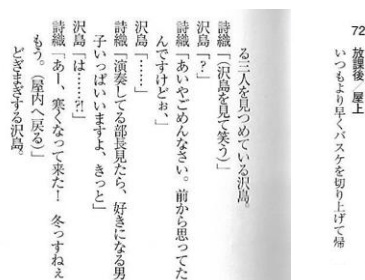 72 放課後/屋上
いつもより早くバスケを切り上げて帰
る三人を見つめている沢島。
詩織「(沢島を見て笑う)」
沢島「?」
詩織「あいやごめんなさい。前から思ってた
んですけどぉ、」
沢島「……」
詩織「演奏してる部長見たら、好きになる男
子いっぱいいますよ、きっと」
沢島「は……?!」
詩織「あー、寒くなって来た! 冬っすねぇ
もう。(屋内へ戻る)」
どぎまぎする沢島。